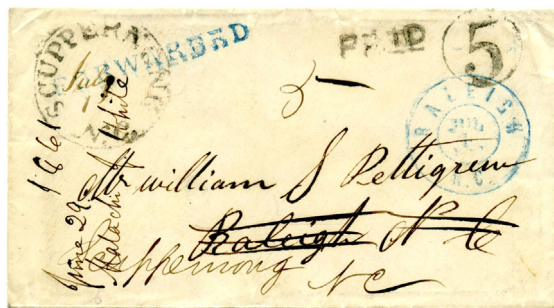 SCUPPERNONG
N.C.
FORWARDED
PAID
5
5
RALEIGH
JUL
N.C.
July
1
June 29 1861
White
Mr william S Pettigrew
Raleigh N C
Scuppernong
NC